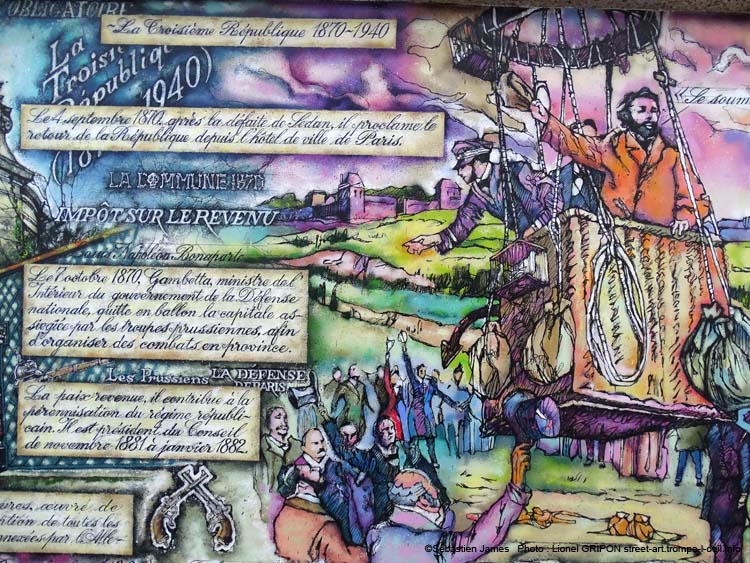 OBLIGATOIRE
La Troisième République 1870-1940
La
Troisiè
République
1940)
Le 4 septembre 1870, après la défaite de Sedan, il proclame le
retour de la République depuis l'hôtel de ville de Paris.
Se soum
LA COMMUNE 1870
IMPÔT SUR LE REVENU
Napoléon Bonaparte
Le 7 octobre 1870, Gambetta, ministre de l'
Intérieur du gouvernement de la Défense
nationale, quitte en ballon la capitale as-
siégée par les troupes prussiennes, afin
d'organiser des combats en province.
Les Prussiens
LA DÉFENSE
DE PARIS
La paix revenue, il contribue à la
pérennisation du régime républi-
cain. Il est président du Conseil
de novembre 1881 à janvier 1882.
ures, œuvre de
ption de toutes les
nnexées par l'Alle-
©Sébastien James Photo : Lionel GRIPON street-art.trompe-l-oeil.info